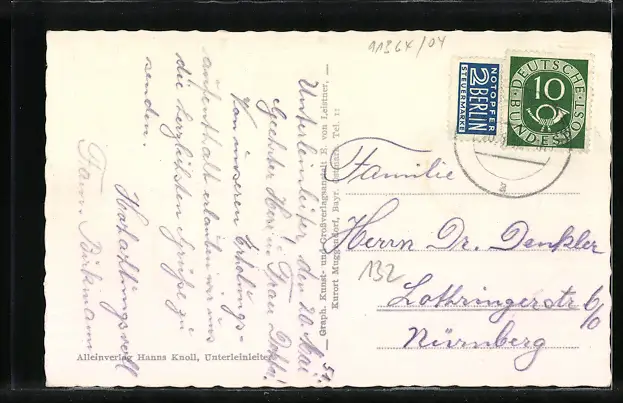 11964/04
Unterleinleiter, den 20. Mai 54.
Geehrter Herr u. Frau Doktor!
Von unserem Erholungs-
aufenthalt erlauben wir uns
die herzlichsten Grüße zu
senden.
Hochachtungsvoll
Fam. Birkmann
Alleinverlag Hanns Knoll, Unterleinleiter
Graph. Kunst- und Großverlagsanstalt H. von Leistner,
Kurort Muggendorf, Bayr. Ostmark Tel. 11
NOTOPFER
2 BERLIN
STEUERMARKE
DEUTSCHE
BUNDESPOST
10
a
Familie
Herrn Dr. Denkler
132
Lothringerstr 6/0
Nürnberg